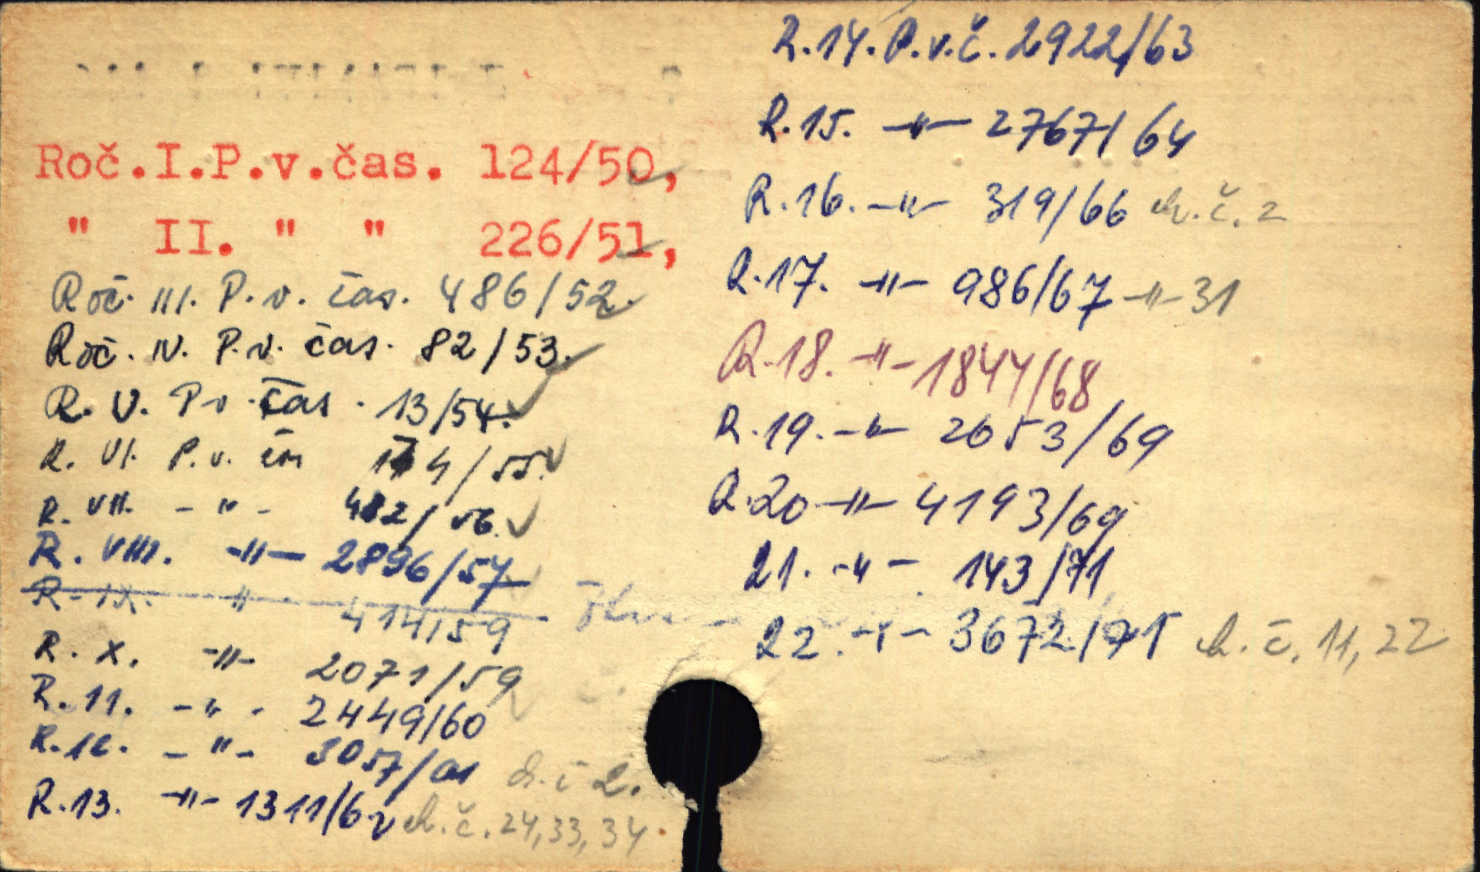 Roč.I.P.v.čas. 124/50,
" II. " " 226/51,
Roč. III. P. v. čas. 486/52.
Roč. IV. P.v. čas. 82/53.
R. V. P v. čas. 13/54.
R. VI. P. v. čas 4/55.
R. VII. - " - 482/56.
R. VIII. -"- 2896/57
R. IX. " 414/59
R. X. -"- 2071/59
R. 11. -"- 2449/60
R. 12. -"- 3057/61 ch. č 2.
R. 13. -"- 1311/62 ch. č. 24, 33, 34.
R. 14. P. v. č. 2922/63
R. 15. -"- 2767/64
R. 16. -"- 319/66 ch. č. 2
R. 17. -"- 986/67 -"- 31
R. 18. -"- 1844/68
R. 19. -"- 2653/69
R. 20 -"- 4193/69
21. -"- 143/71
22. -"- 3672/71 ch. č. 11, 22